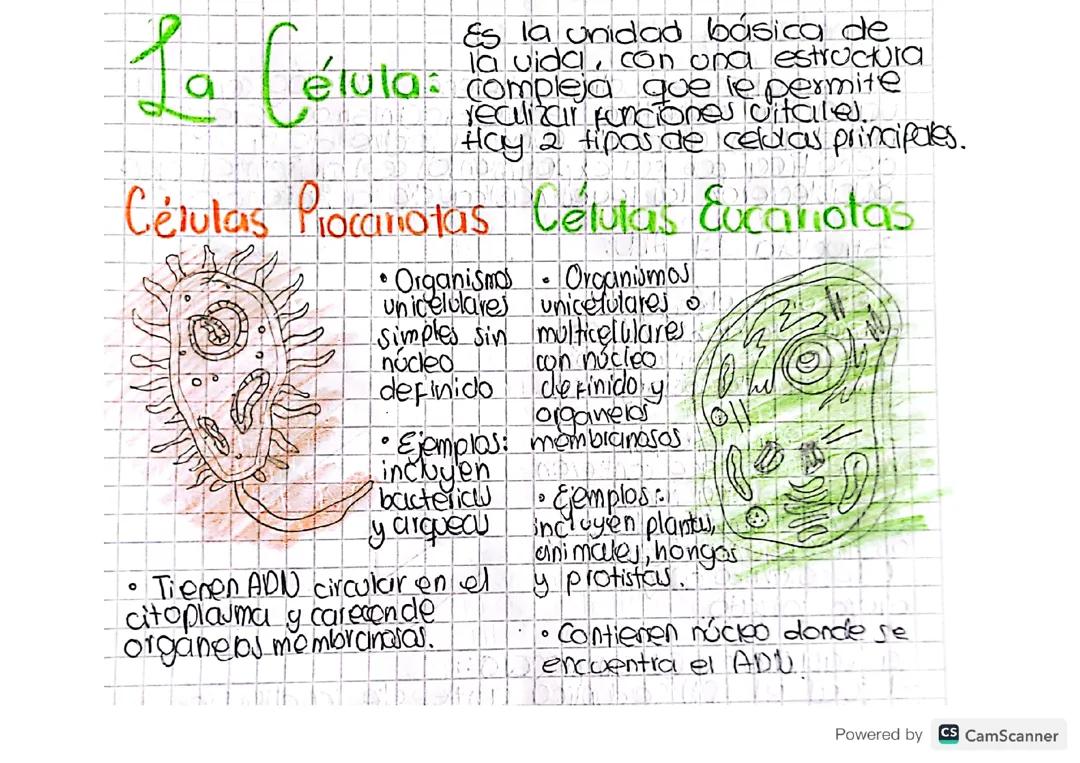 La Célula:
Es la unidad básica de
la vida, con una estructura
compleja que le permite
realizar funciones vitales.
Hay 2 tipos de celulas principales.
Células Procariotas
• Organismos
unicelulares
simples sin
núcleo
definido
• Ejemplos:
incluyen
bacterias
y arqueas
• Tienen ADN circular en el
citoplasma y carecen de
organelos membranosos.
Células Eucariotas
• Organismos
unicelulares o
multicelulares
con núcleo
definido y
organelos
membranosos.
• Ejemplos:
incluyen plantas,
animales, hongos
y protistas.
• Contienen núcleo donde se
encuentra el ADN.
Powered by CS CamScanner